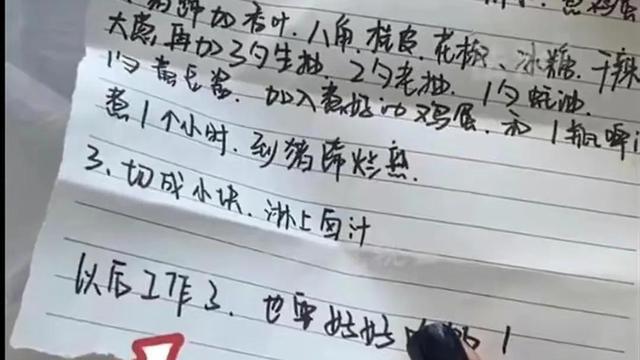 蹄加香叶、八角、桂皮、花椒、冰糖、干辣
大葱,再加3勺生抽,2勺老抽,1勺蚝油
1勺黄豆酱,加入煮好的鸡蛋,和1瓶啤
煮1个小时,到猪蹄烂熟.
3、切成小块,淋上卤汁
以后工作了,也要好好吃